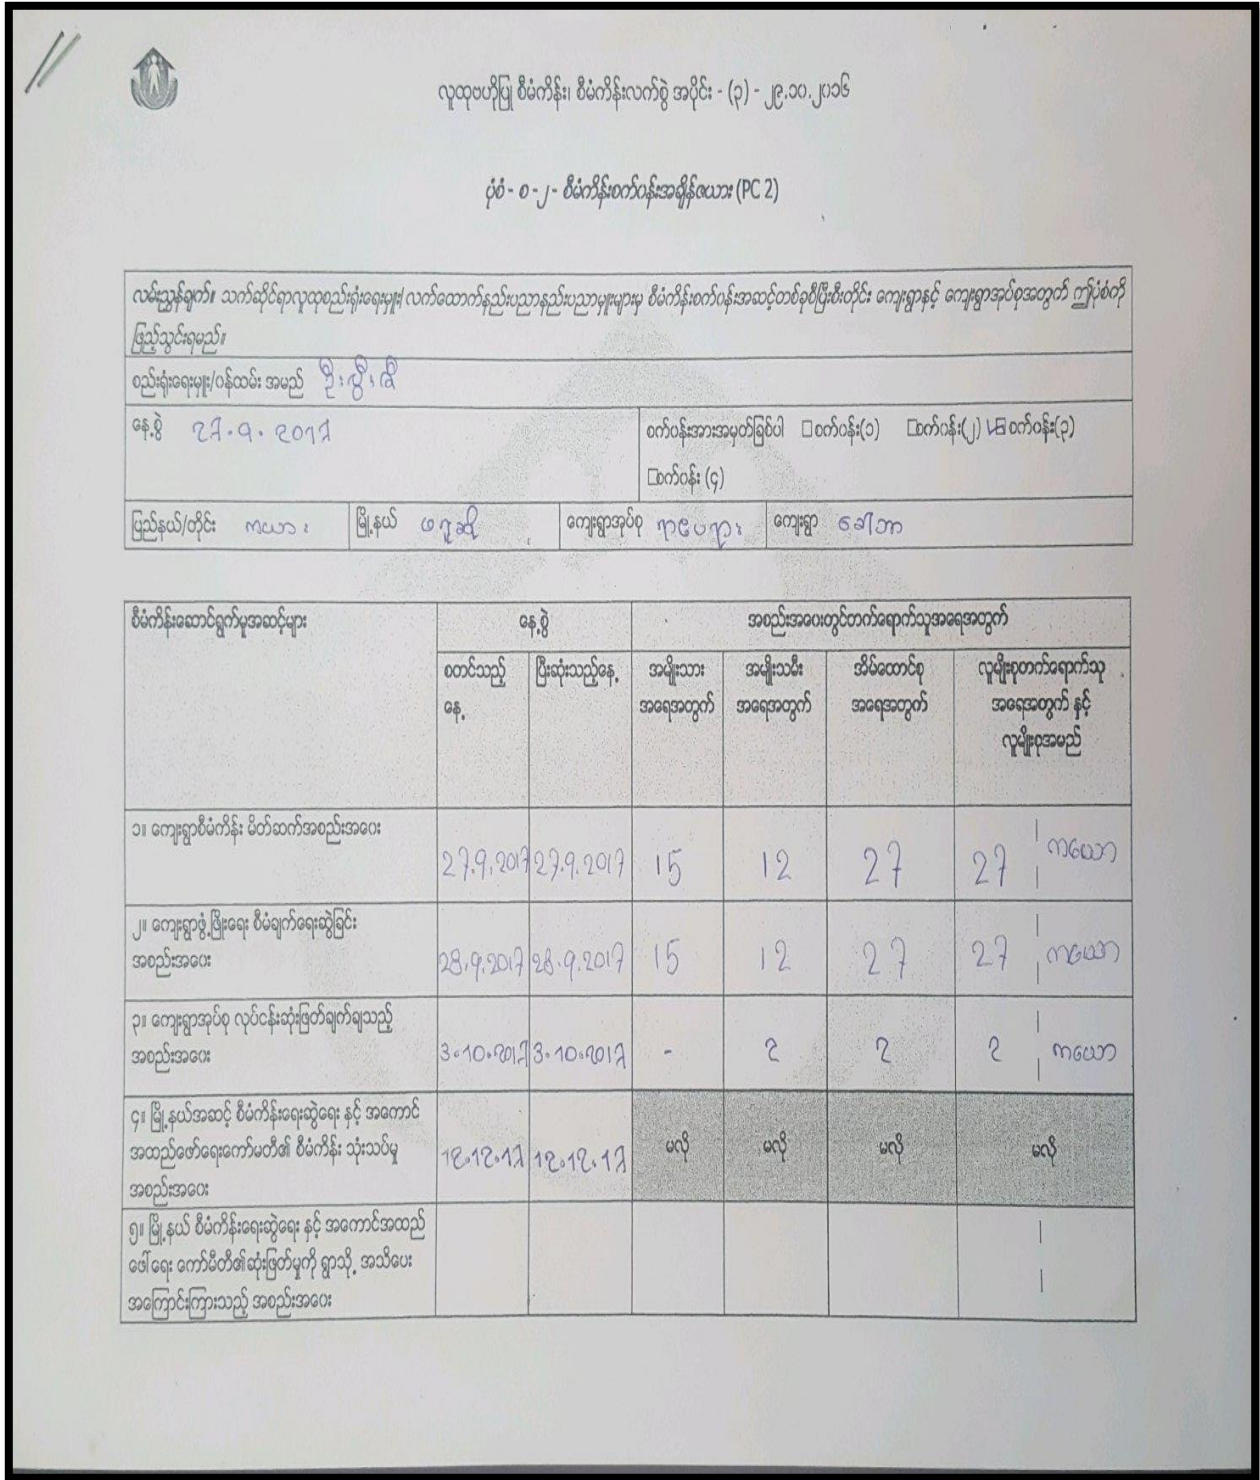 လူထုဗဟိုပြု စီမံကိန်း၊ စီမံကိန်းလက်စွဲ အပိုင်း - (၃) - ၂၉.၁၀.၂၀၁၆
ပုံစံ - စ -၂ - စီမံကိန်းစက်ဝန်းအချိန်ဇယား (PC 2)
လမ်းညွှန်ချက်။ သက်ဆိုင်ရာလူထုစည်းရုံးရေးမှူး/ လက်ထောက်နည်းပညာနည်းပညာမှူးများမှ စီမံကိန်းစက်ဝန်းအဆင့်တစ်ခုစီပြီးစီးတိုင်း ကျေးရွာနှင့် ကျေးရွာအုပ်စုအတွက် ဤပုံစံကို
ဖြည့်သွင်းရမည်။
စည်းရုံးရေးမှူး/ဝန်ထမ်း အမည်
နေ့စွဲ 27.9.2017 စက်ဝန်းအားအမှတ်ခြစ်ပါ □စက်ဝန်း(၁) □စက်ဝန်း(၂) စက်ဝန်း(၃)
□စက်ဝန်း (၄)
ပြည်နယ်/တိုင်း ကယား မြို့နယ် ဖရူဆို ကျေးရွာအုပ်စု ကျေးရွာ ခေါ်ဘာ
စီမံကိန်းဆောင်ရွက်မှုအဆင့်များ နေ့စွဲ အစည်းအဝေးတွင်တက်ရောက်သူအရေအတွက်
စတင်သည့် ပြီးဆုံးသည့်နေ့ အမျိုးသား အမျိုးသမီး အိမ်ထောင်စု လူမျိုးစုတက်ရောက်သူ
နေ့ အရေအတွက် အရေအတွက် အရေအတွက် အရေအတွက် နှင့်
လူမျိုးစုအမည်
၁။ ကျေးရွာစီမံကိန်း မိတ်ဆက်အစည်းအဝေး
27.9.2017 27.9.2017 15 12 27 27 ကယော
၂။ ကျေးရွာဖွံ့ဖြိုးရေး စီမံချက်ရေးဆွဲခြင်း
အစည်းအဝေး 28.9.2017 28.9.2017 15 12 27 27 ကယော
၃။ ကျေးရွာအုပ်စု လုပ်ငန်းဆုံးဖြတ်ချက်ချသည့်
အစည်းအဝေး 3.10.2017 3.10.2017 - 2 2 2 ကယော
၄။ မြို့နယ်အဆင့် စီမံကိန်းရေးဆွဲရေး နှင့် အကောင်
အထည်ဖော်ရေးကော်မတီ၏ စီမံကိန်း သုံးသပ်မှု 12.12.17 12.12.17 မလို မလို မလို မလို
အစည်းအဝေး
၅။ မြို့နယ် စီမံကိန်းရေးဆွဲရေး နှင့် အကောင်အထည်
ဖေါ်ရေး ကော်မီတီ၏ဆုံးဖြတ်မှုကို ရွာသို့ အသိပေး
အကြောင်းကြားသည့် အစည်းအဝေး